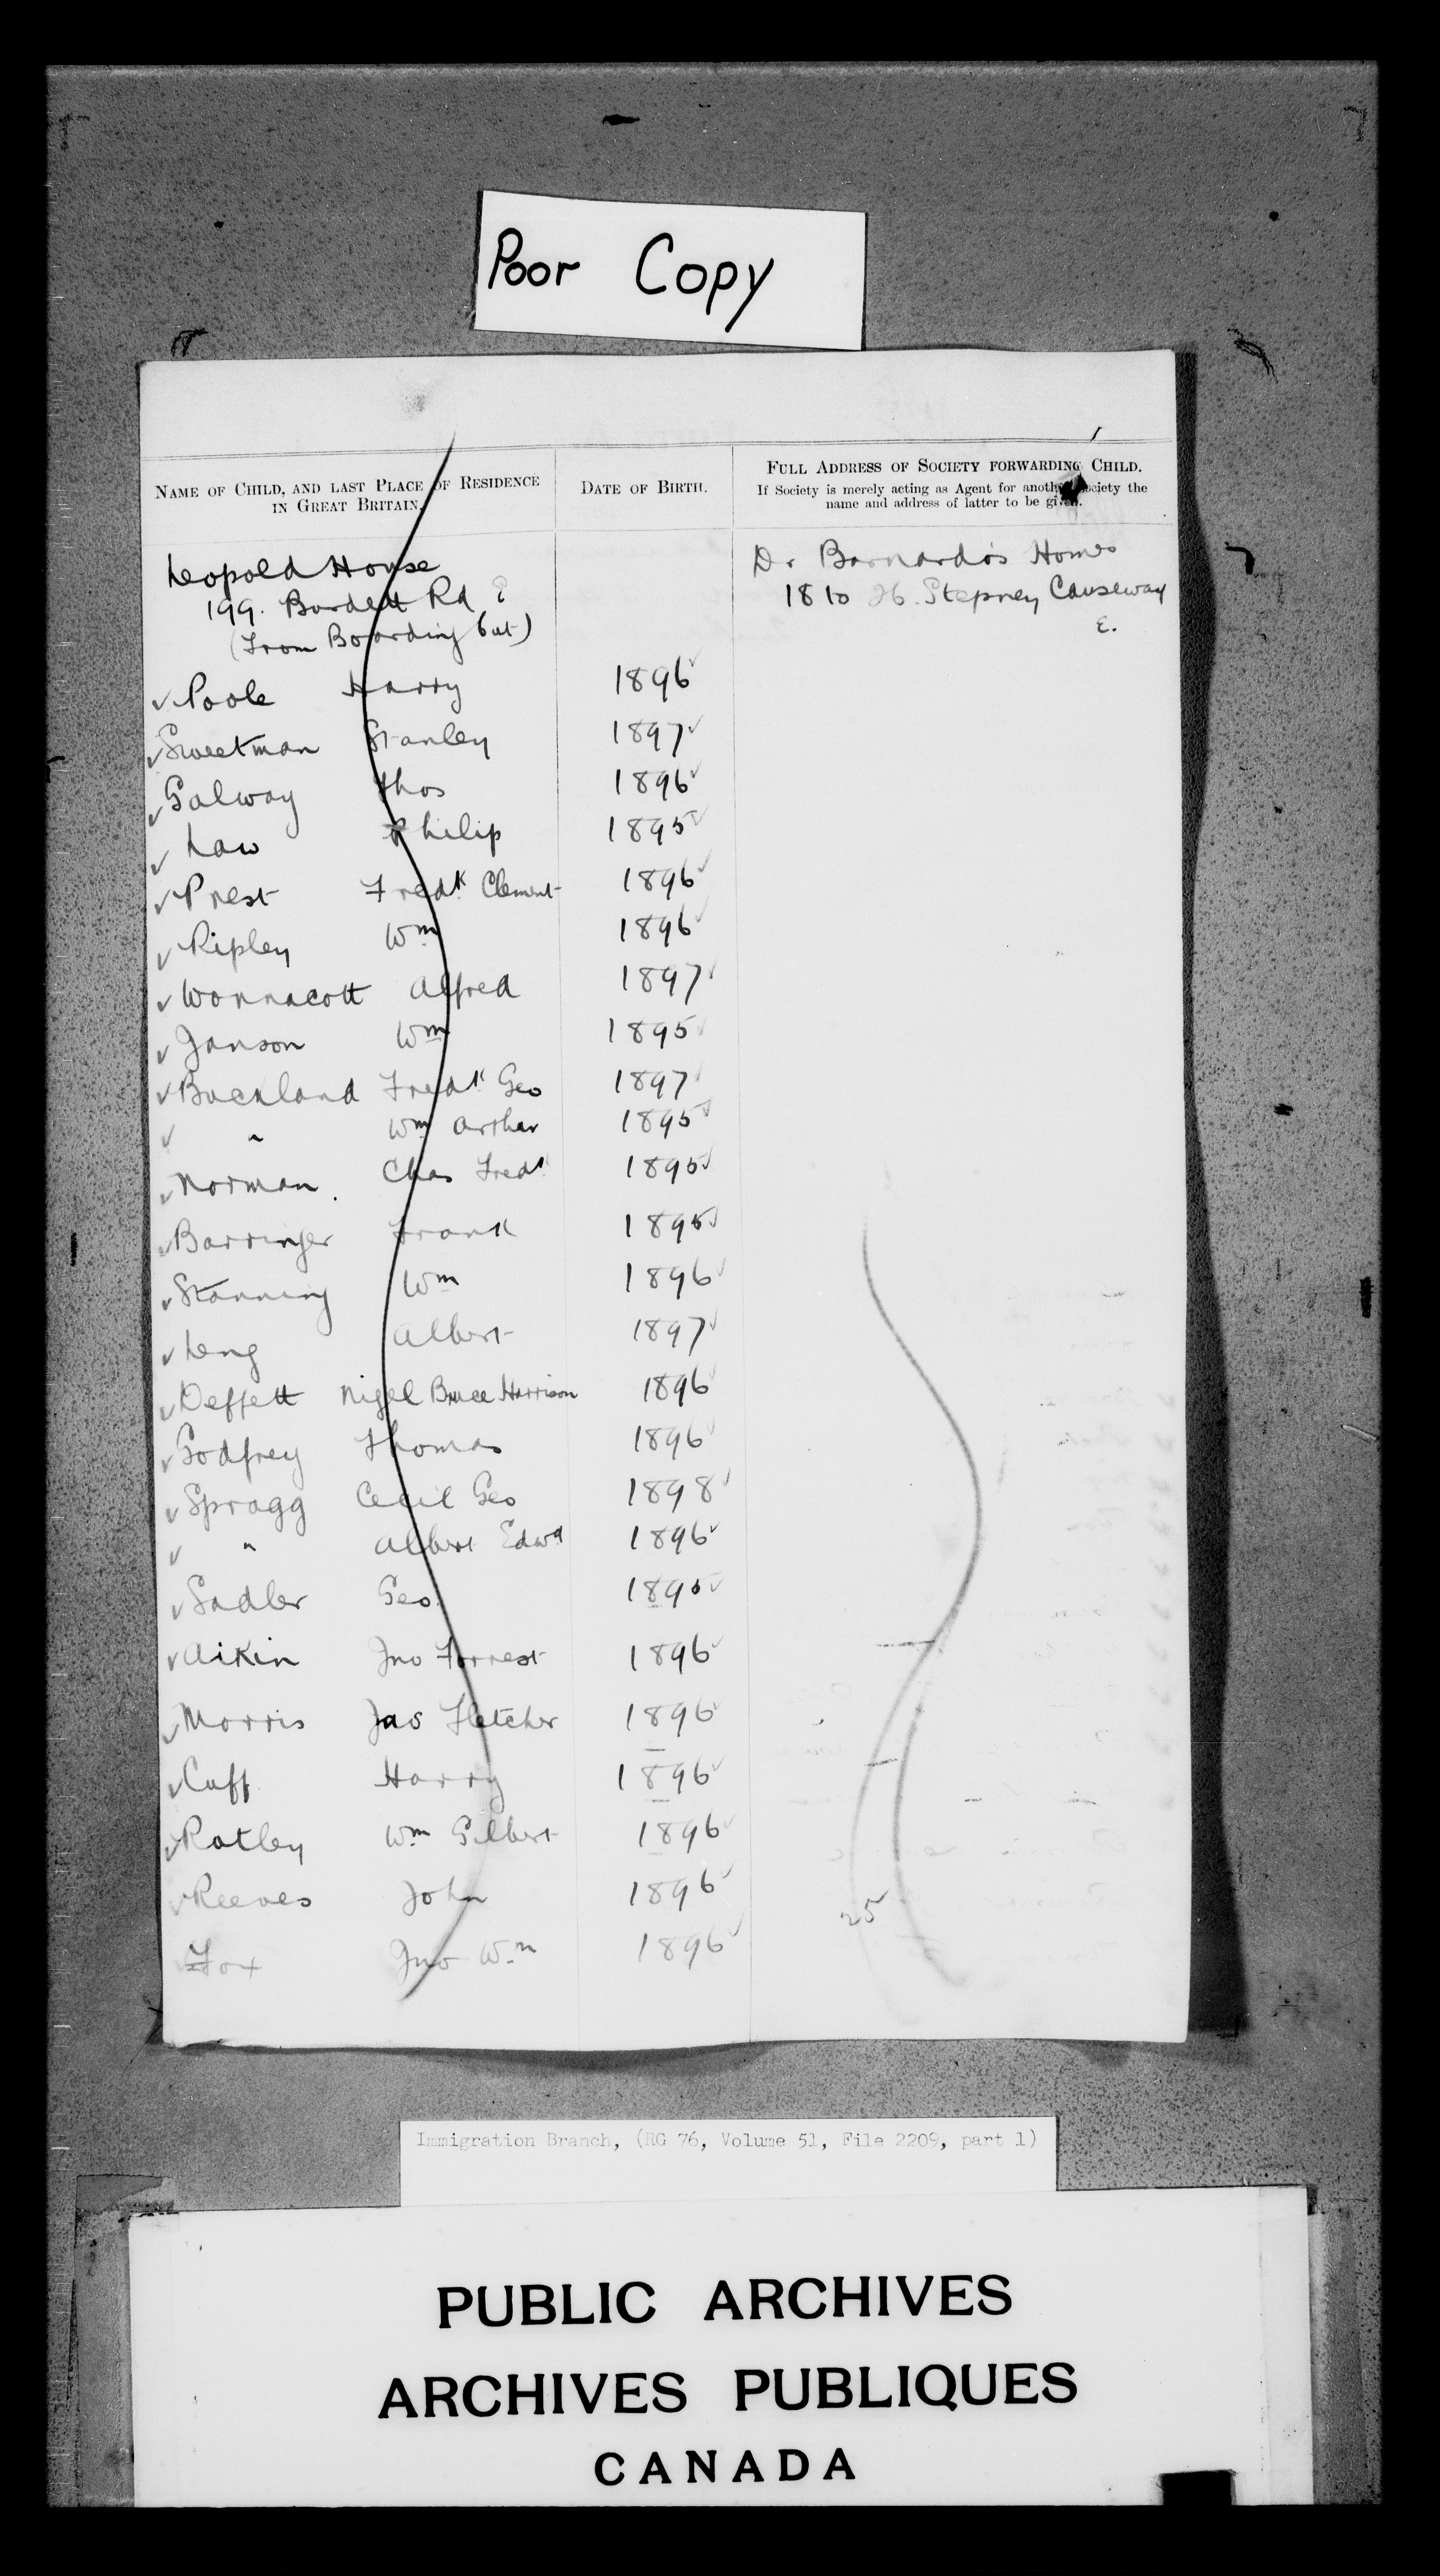 Poor Copy
NAME OF CHILD, AND LAST PLACE OF RESIDENCE IN GREAT BRITAIN.
DATE OF BIRTH.
FULL ADDRESS OF SOCIETY FORWARDING CHILD.
If Society is merely acting as Agent for another Society the
name and address of latter to be given.
Leopold House
199. Burdett Rd E
(From Boarding Out)
Dr Barnardo's Homes
18 to 26. Stepney Causeway
E.
✓ Poole Harry 1896 ✓
✓ Sweetman Stanley 1897 ✓
✓ Galway Thos 1896 ✓
✓ Law Philip 1895 ✓
✓ Prest Fredk Clement 1896 ✓
✓ Ripley Wm 1896 ✓
✓ Wonnacott Alfred 1897 ✓
✓ Janson Wm 1895 ✓
✓ Buckland Fredk Geo 1897 ✓
✓ " Wm Arthur 1895 ✓
✓ Norman. Chas Fredk 1895 ✓
✓ Barringer Frank 1895 ✓
✓ Stanning Wm 1896 ✓
✓ Leng Albert 1897 ✓
✓ Deffett Nigel Bruce Harrison 1896
✓ Godfrey Thomas 1896 ✓
✓ Spragg Cecil Geo 1898 ✓
✓ " Albert Edwd 1896 ✓
✓ Sadler Geo. 1895 ✓
✓ Aikin Jno Forrest 1896 ✓
✓ Morris Jas Fletcher 1896 ✓
✓ Cuff Harry 1896 ✓
✓ Ratley Wm Gilbert 1896 ✓
✓ Reeves John 1896 ✓
25
Fox Jno Wm 1896 ✓
Immigration Branch, (RG 76, Volume 51, File 2209, part 1)
PUBLIC ARCHIVES
ARCHIVES PUBLIQUES
CANADA